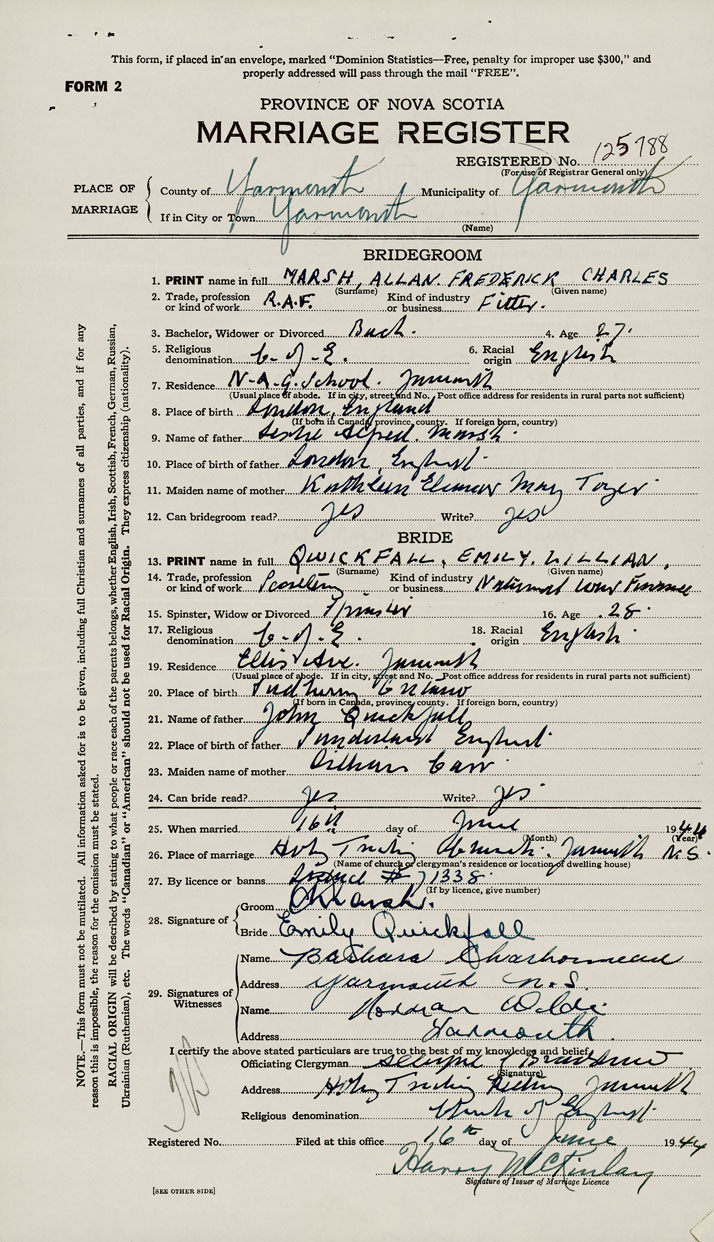 This form, if placed in an envelope, marked “Dominion Statistics—Free, penalty for improper use $300,” and
properly addressed will pass through the mail “FREE”.
FORM 2
PROVINCE OF NOVA SCOTIA
MARRIAGE REGISTER
REGISTERED No. 125788
(For use of Registrar General only)
PLACE OF MARRIAGE
County of Yarmouth Municipality of Yarmouth
If in City or Town Yarmouth
(Name)
BRIDEGROOM
1. PRINT name in full MARSH, ALLAN. FREDERICK CHARLES
(Surname) (Given name)
2. Trade, profession or kind of work R.A.F. Kind of industry or business Fitter.
3. Bachelor, Widower or Divorced Bach. 4. Age 27.
5. Religious denomination C. of E. 6. Racial origin English
7. Residence N.A.G. School. Yarmouth
(Usual place of abode. If in city, street and No. Post office address for residents in rural parts not sufficient)
8. Place of birth London, England
(If born in Canada, province, county. If foreign born, country)
9. Name of father Leslie Alfred. Marsh.
10. Place of birth of father London, England.
11. Maiden name of mother Kathleen Eleanor May Tozer
12. Can bridegroom read? yes Write? yes
BRIDE
13. PRINT name in full QUICKFALL, EMILY. LILLIAN.
(Surname) (Given name)
14. Trade, profession or kind of work Kind of industry or business National War Finance
15. Spinster, Widow or Divorced Spinster 16. Age 28.
17. Religious denomination C. of E. 18. Racial origin English.
19. Residence Ellis Ave. Yarmouth
(Usual place of abode. If in city, street and No. Post office address for residents in rural parts not sufficient)
20. Place of birth Sudbury Ontario
(If born in Canada, province, county. If foreign born, country)
21. Name of father John Quickfall
22. Place of birth of father Sunderland England.
23. Maiden name of mother Carr
24. Can bride read? yes Write? yes
25. When married 16th day of June 1944
(Month) (Year)
26. Place of marriage Holy Trinity Church. Yarmouth N.S.
(Name of church or clergyman's residence or location of dwelling house)
27. By licence or banns Licence # 71338.
(If by licence, give number)
28. Signature of
Groom Marsh.
Bride Emily Quickfall
29. Signatures of Witnesses
Name Barbara Charbonneau
Address Yarmouth N.S.
Name Norman Wilde
Address Yarmouth.
I certify the above stated particulars are true to the best of my knowledge and belief.
Officiating Clergyman
(Signature)
Address Holy Trinity Rectory Yarmouth
Religious denomination Church of England.
Registered No. Filed at this office 16th day of June 1944
Harry McKinlay
Signature of Issuer of Marriage Licence
[SEE OTHER SIDE]
NOTE.—This form must not be mutilated. All information asked for is to be given, including full Christian and surnames of all parties, and if for any
reason this is impossible, the reason for the omission must be stated.
RACIAL ORIGIN will be described by stating to what people or race each of the parents belongs, whether English, Irish, Scottish, French, German, Russian,
Ukrainian (Ruthenian), etc. The words “Canadian” or “American” should not be used for Racial Origin. They express citizenship (nationality).